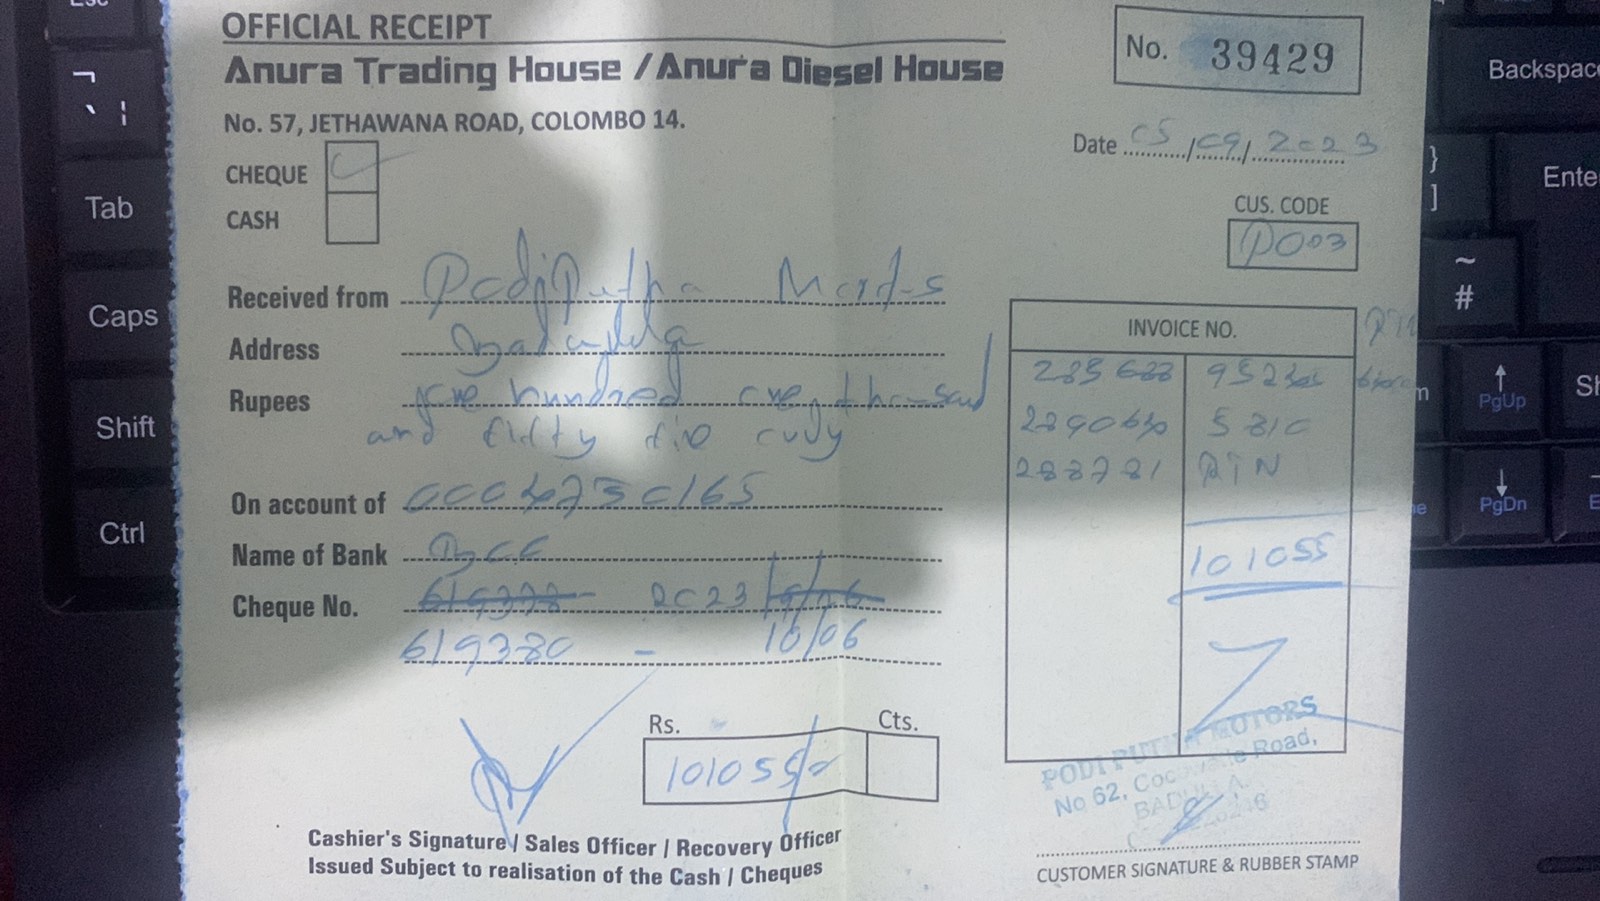 OFFICIAL RECEIPT
Anura Trading House / Anura Diesel House
No. 39429
No. 57, JETHAWANA ROAD, COLOMBO 14.
Date 05/09/2023
CHEQUE
CASH
CUS. CODE
P003
Received from Podiputha Motors
Address
Rupees one hundred one thousand
and fifty five only
INVOICE NO.
5810
288781 RTN
101055
On account of
Name of Bank
Cheque No. 619378 - 2023
619380 - 10/06
Rs. Cts.
101055/-
PODI PUTHA MOTORS
No 62, Road,
BADULLA.
Cashier's Signature / Sales Officer / Recovery Officer
Issued Subject to realisation of the Cash / Cheques
CUSTOMER SIGNATURE & RUBBER STAMP
Esc
Tab
Caps
Shift
Ctrl
Backspac
Ente
}
]
~
#
PgUp
PgDn